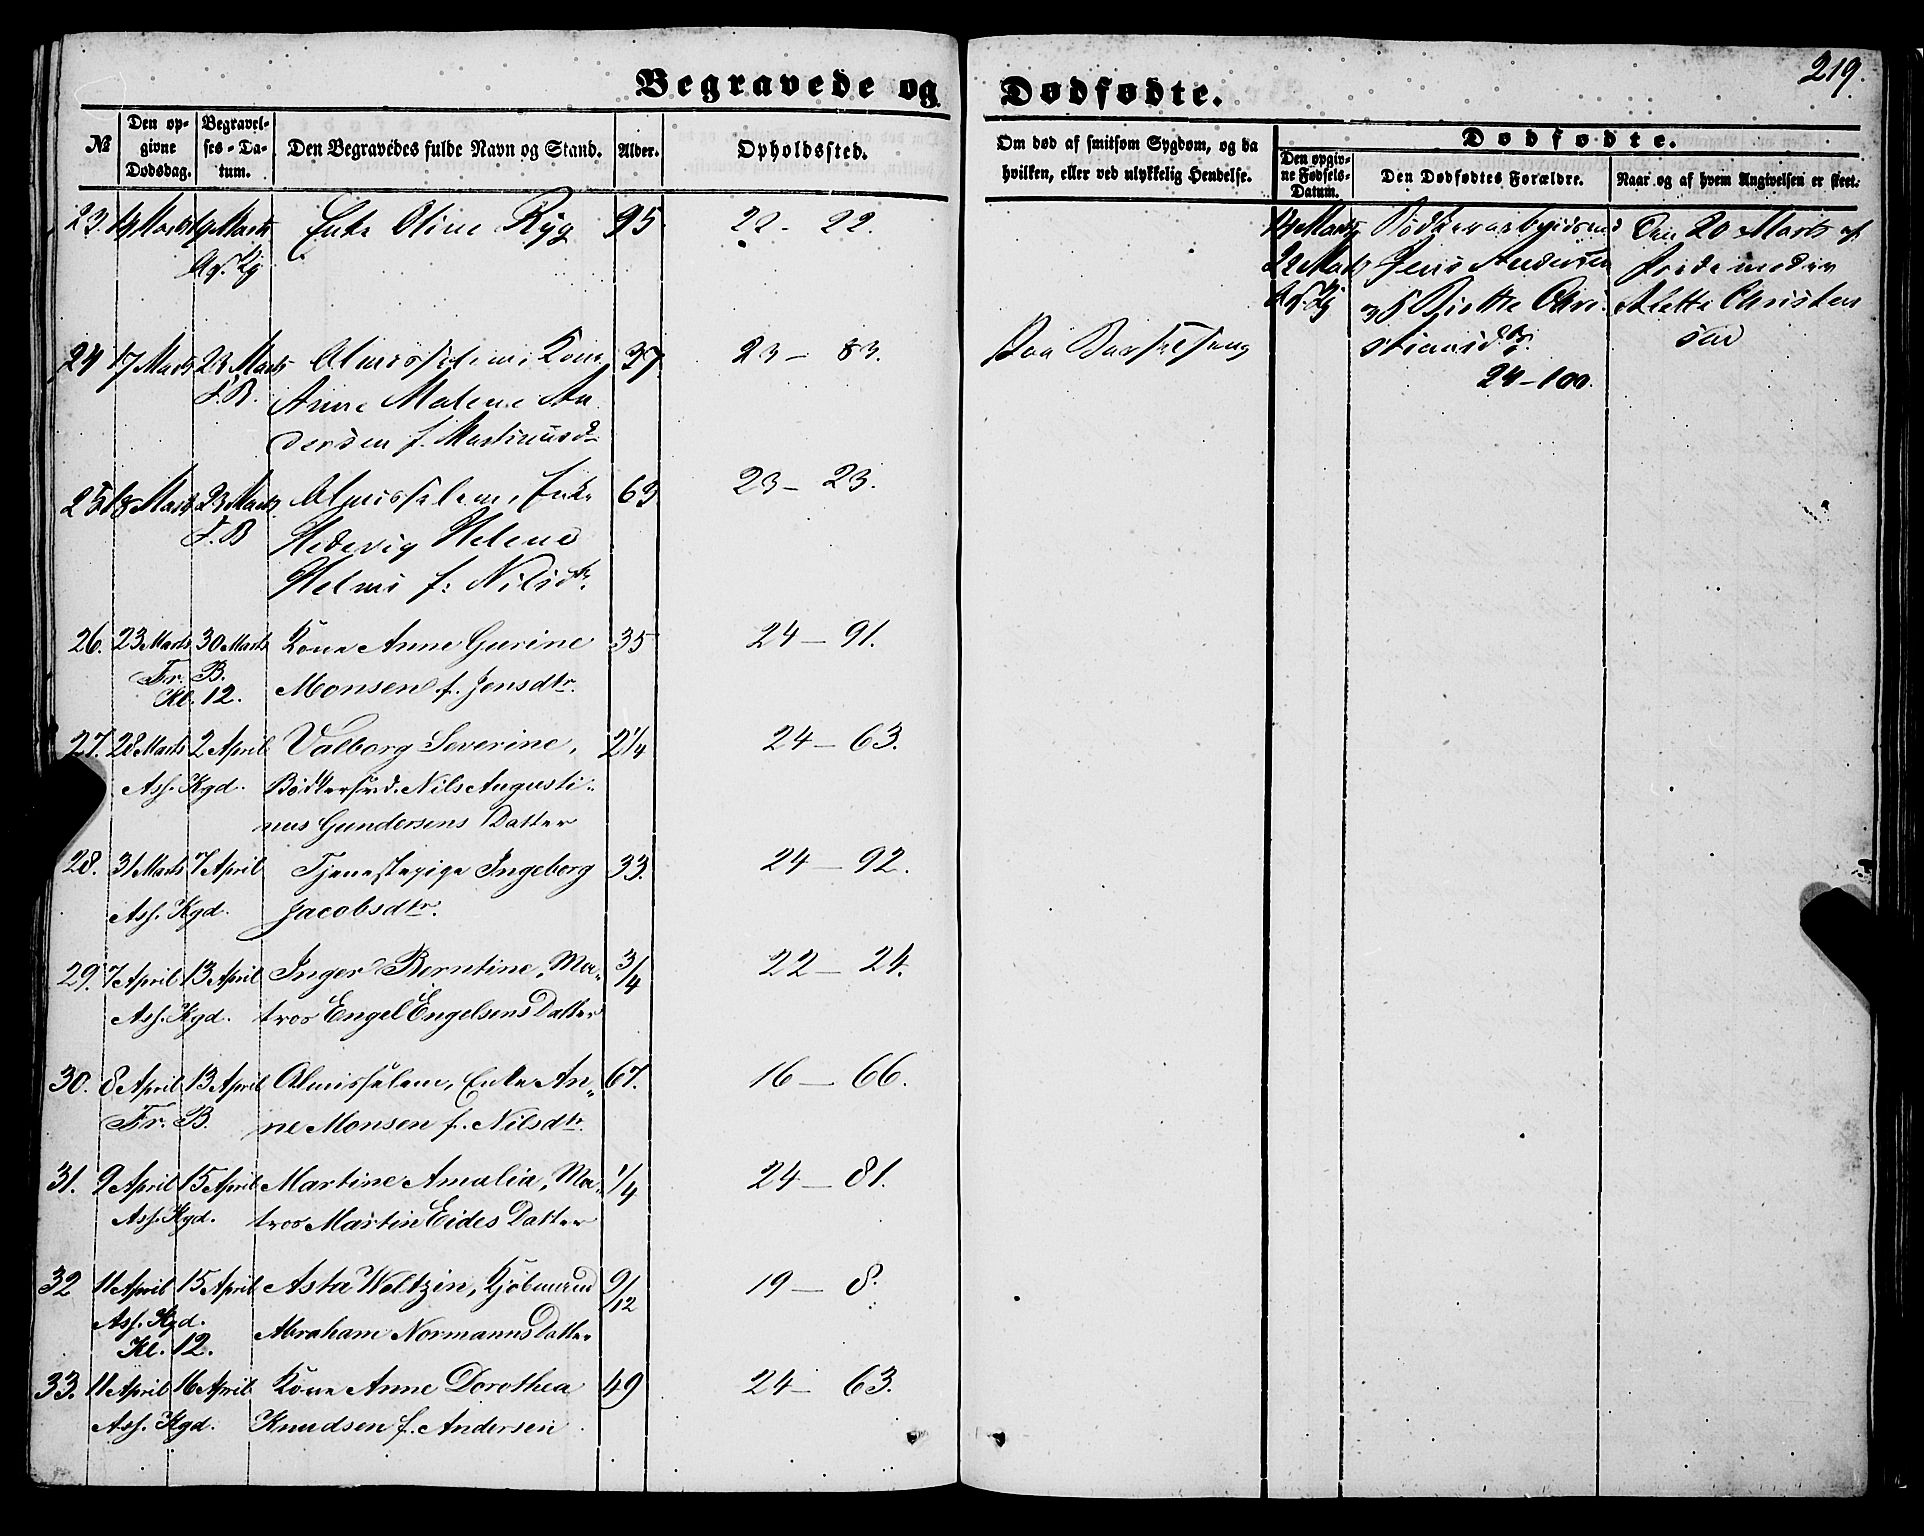 219.
Begravede og Dødfødte.
№
Den opgivne Dødsdag.
Begravelses-Datum.
Den Begravedes fulde Navn og Stand.
Alder.
Opholdssted.
Om død af smitsom Sygdom, og da
hvilken, eller ved ulykkelig Hendelse.
Dødfødte.
Den opgivne Fødsels-Datum.
Den Dødfødtes Forældre.
Naar og af hvem Angivelsen er skeet.
23. Marts 19 Marts Enke Oline Ryg 95 22 - 22.
24 17 Marts 23 Marts Almisselem, Kone 37 23 - 83.
F. B. Anne Malene An
dersen f. Martinusd
25 18 Marts 23 Marts Almisselem, Enke 63 23 - 23.
F. B Hedevig Helene
Helms f: Nilsdtr.
26. 23 Marts 30 Marts Kone Anne Gurine 35 24 - 91.
Fr. B. Monsen f. Jensdtr.
Kl. 12.
27. 28 Marts 2 April Valborg Severine, 2 1/4 24 - 63.
Ass. Kgd. Bødkersvd. Nils Augusti-
nus Gundersens Datter
28. 31 Marts 7 April Tjenestepige Ingeborg 33. 24 - 92.
Ass. Kgd. Jacobsdtr.
29. 7 April 13 April Inger Berntine, Ma- 3/4 22 - 24.
Ass. Kgd. tros Engel Engelsens Datter
30. 8 April 13 April Almisselem, Enke An- 67. 16 - 66.
Fr. B. ne Monsen f. Nilsdtr.
31. 9 April 15 April Martine Amalia, Ma- 1/4 24 - 81.
Ass. Kgd. tros Martin Eides Datter
32 11 April 15 April Asta Weltzin, Kjøbmand 9/12 19 - 8.
Ass. Kgd. Abraham Normanns Datter
Kl. 12.
33. 11 April 16 April Kone Anne Dorothea 49 24 - 63.
Ass. Kgd. Knudsen f. Andersen
Paa Barselseng
Marts Den 20 Marts af
22 Marts Jens Andersen Jordemoder
Birthe Chri- Alette Christen
stiansdtr. sen
24 - 100.